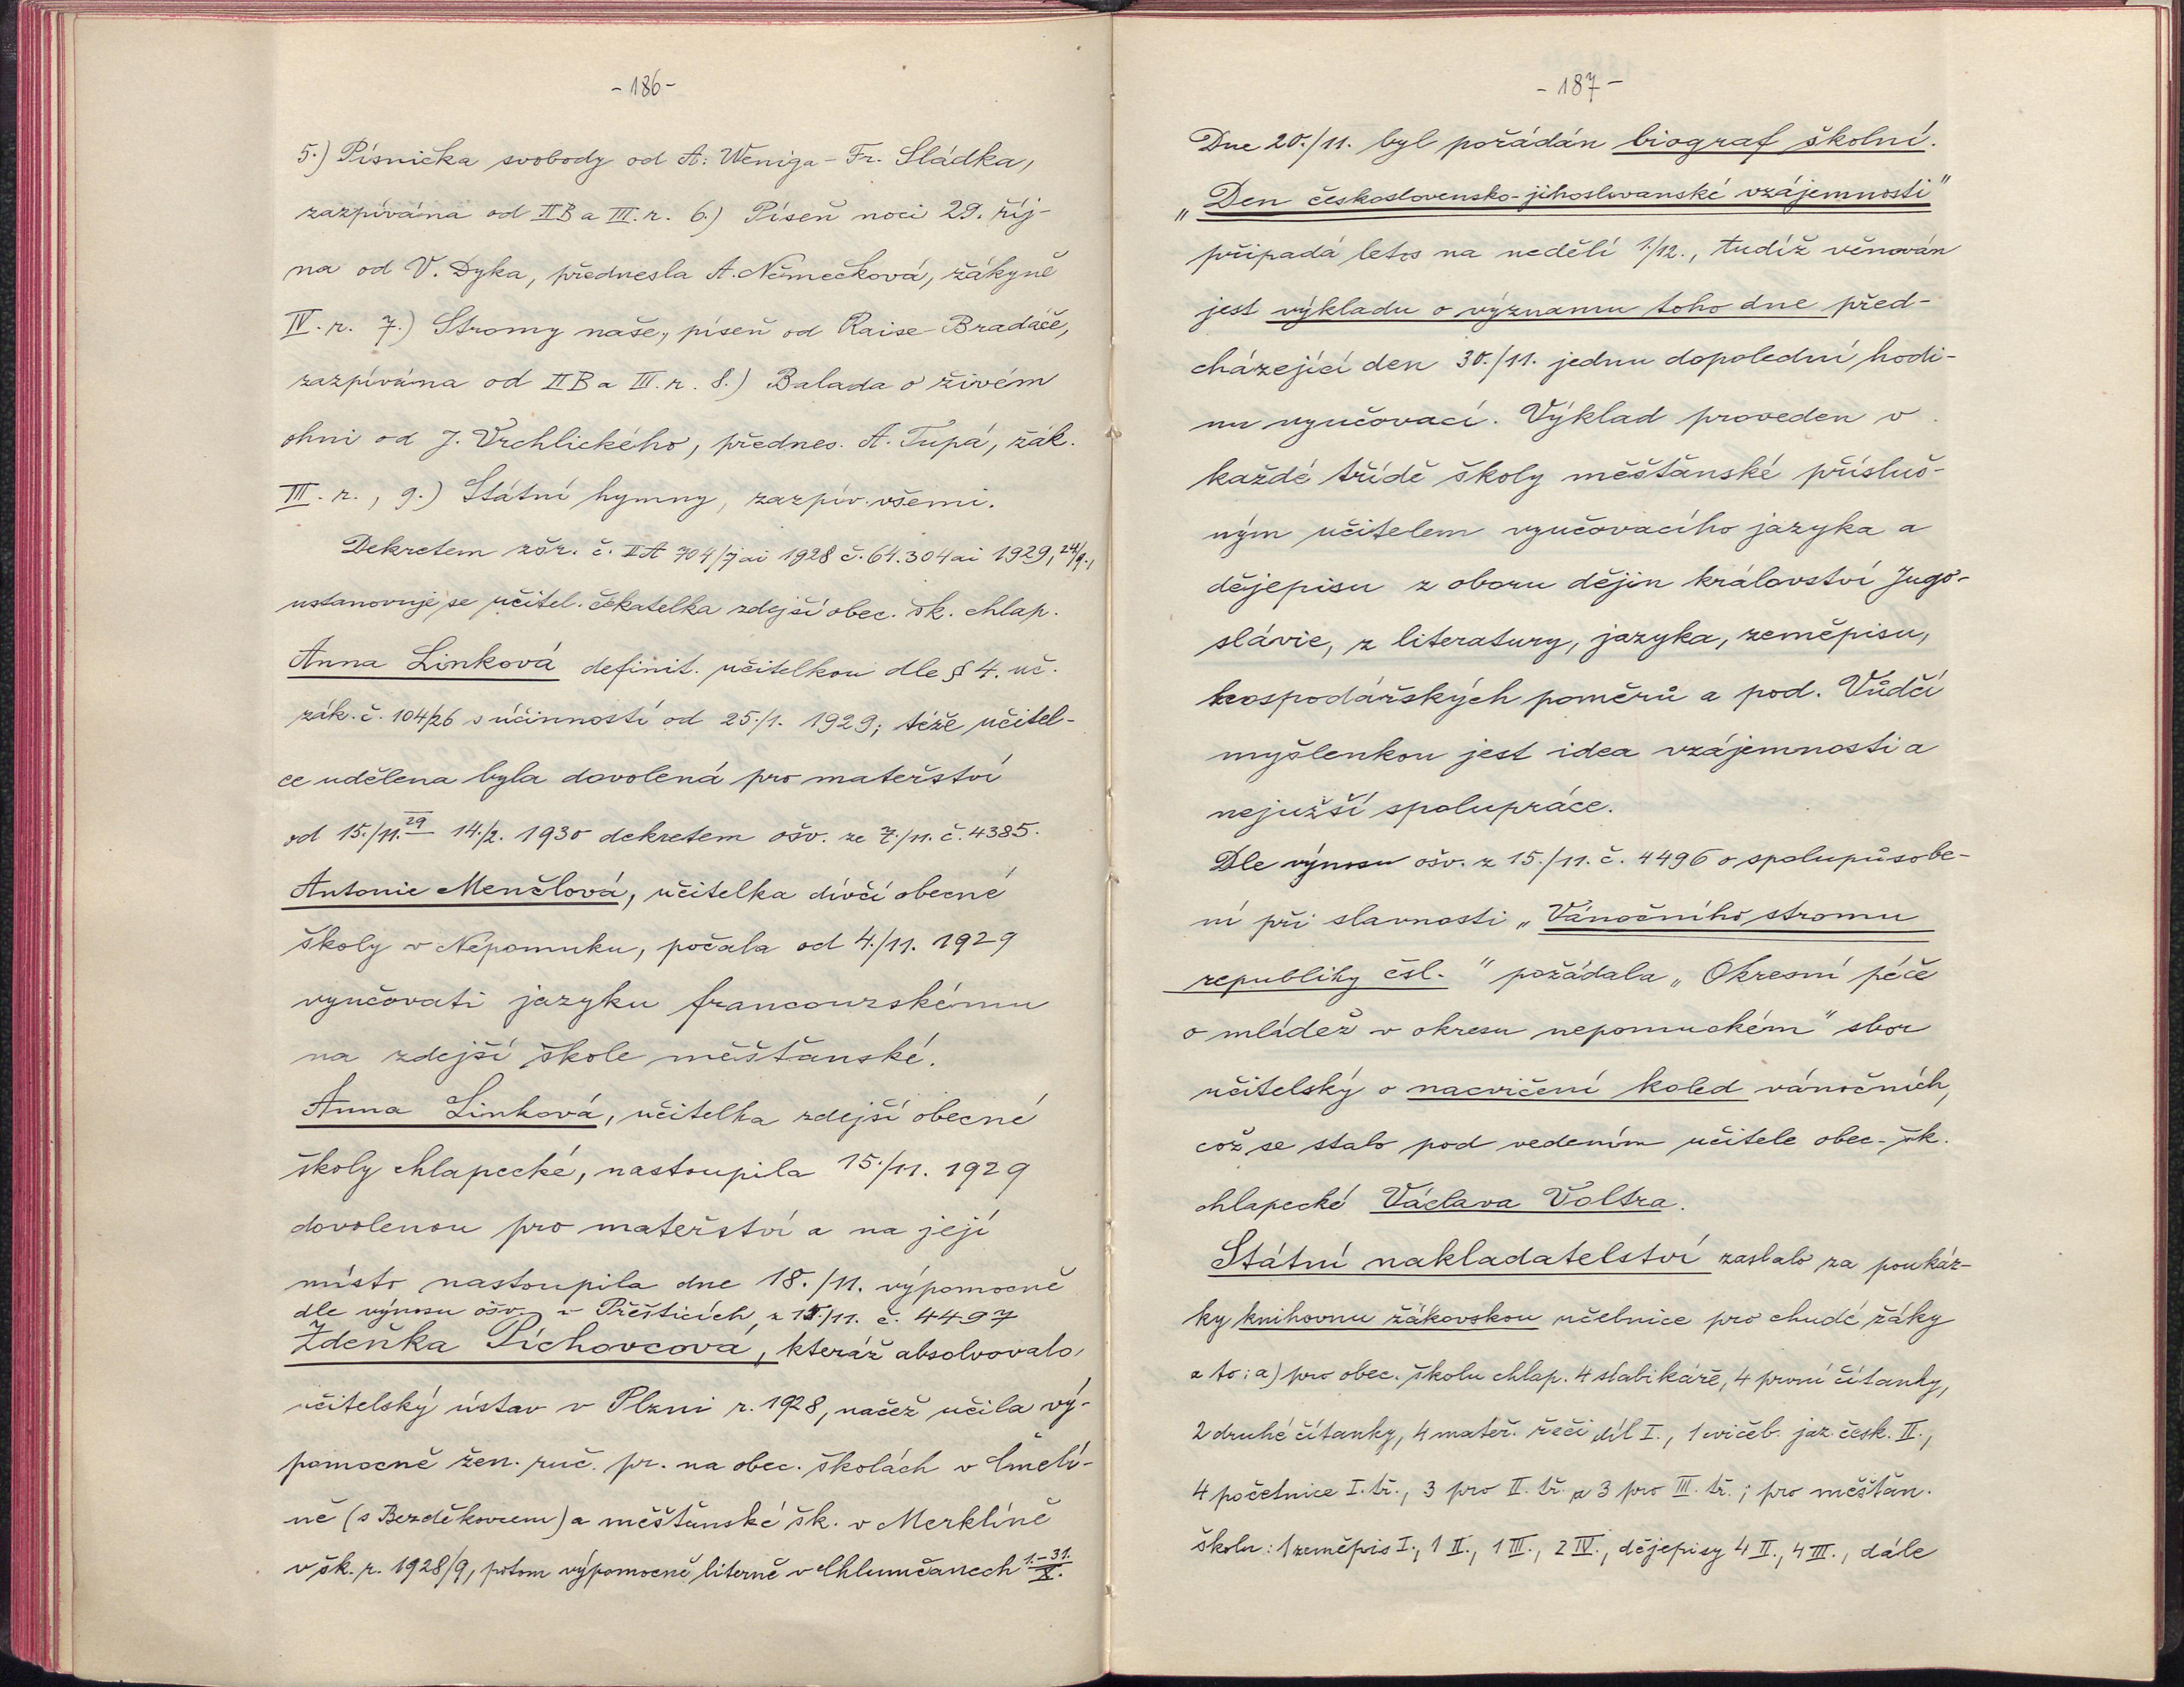 - 186 -
5.) Písnička svobody od A. Weniga - Fr. Sládka,
zazpívána od II B a III. r. 6.) Píseň noci 29. říj-
na od V. Dyka, přednesla A. Němečková, žákyně
IV. r. 7.) Stromy naše, píseň od Raise - Bradáče,
zazpívána od II B a III. r. 8.) Balada o živém
ohni od J. Vrchlického, přednes. A. Tupá, žák.
III. r., 9.) Státní hymny, zazpív. všemi.
Dekretem zšr. č. II A 704/7 ai 1928 č. 64.304 ai 1929, 24/9.,
ustanovuje se učitel. čekatelka zdejší obec. šk. chlap.
Anna Linková definit. učitelkou dle § 4. uč.
zák. č. 104/26 s účinností od 25./1. 1929; téže učitel-
ce udělena byla dovolená pro mateřství
od 15./11. 29 - 14./2. 1930 dekretem ošv. ze 7./11. č. 4385.
Antonie Menclová, učitelka dívčí obecné
školy v Nepomuku, počala od 4./11. 1929
vyučovati jazyku francouzskému
na zdejší škole měšťanské.
Anna Linková, učitelka zdejší obecné
školy chlapecké, nastoupila 15./11. 1929
dovolenou pro mateřství a na její
místo nastoupila dne 18./11. výpomocně
dle výnosu ošv. v Přešticích z 15./11. č. 4497
Zdeňka Píchovcová, kteráž absolvovala
učitelský ústav v Plzni r. 1928, načež učila vý-
pomocně žen. ruč. pr. na obec. školách v Čmelí-
ně (s Bezděkovcem) a měšťanské šk. v Merklíně
v šk. r. 1928/9, potom výpomocně literně v Chlumčanech 1.-31./X.
- 187 -
Dne 20./11. byl pořádán biograf školní.
„Den československo-jihoslovanské vzájemnosti"
připadá letos na neděli 1./12., tudíž věnován
jest výkladu o významu toho dne před-
cházející den 30./11. jednu dopolední hodi-
nu vyučovací. Výklad proveden v
každé třídě školy měšťanské přísluš-
ným učitelem vyučovacího jazyka a
dějepisu z oboru dějin království Jugo-
slávie, z literatury, jazyka, zeměpisu,
hospodářských poměrů a pod. Vůdčí
myšlenkou jest idea vzájemnosti a
nejužší spolupráce.
Dle výnosu ošv. z 15./11. č. 4496 o spolupůsobe-
ní při slavnosti „Vánočního stromu
republiky čsl." požádala „Okresní péče
o mládež v okresu nepomuckém" sbor
učitelský o nacvičení koled vánočních,
což se stalo pod vedením učitele obec. šk.
chlapecké Václava Voltra.
Státní nakladatelství zaslalo za poukáz-
ky knihovnu žákovskou učebnice pro chudé žáky
a to: a) pro obec. školu chlap. 4 slabikáře, 4 první čítanky,
2 druhé čítanky, 4 mateř. řeči díl I., 1 cvičeb. jaz. česk. II.,
4 početnice I. tř., 3 pro II. tř. a 3 pro III. tř.; pro měšťan.
školu: 1 zeměpis I., 1 II., 1 III., 2 IV., dějepisy 4 II., 4 III., dále